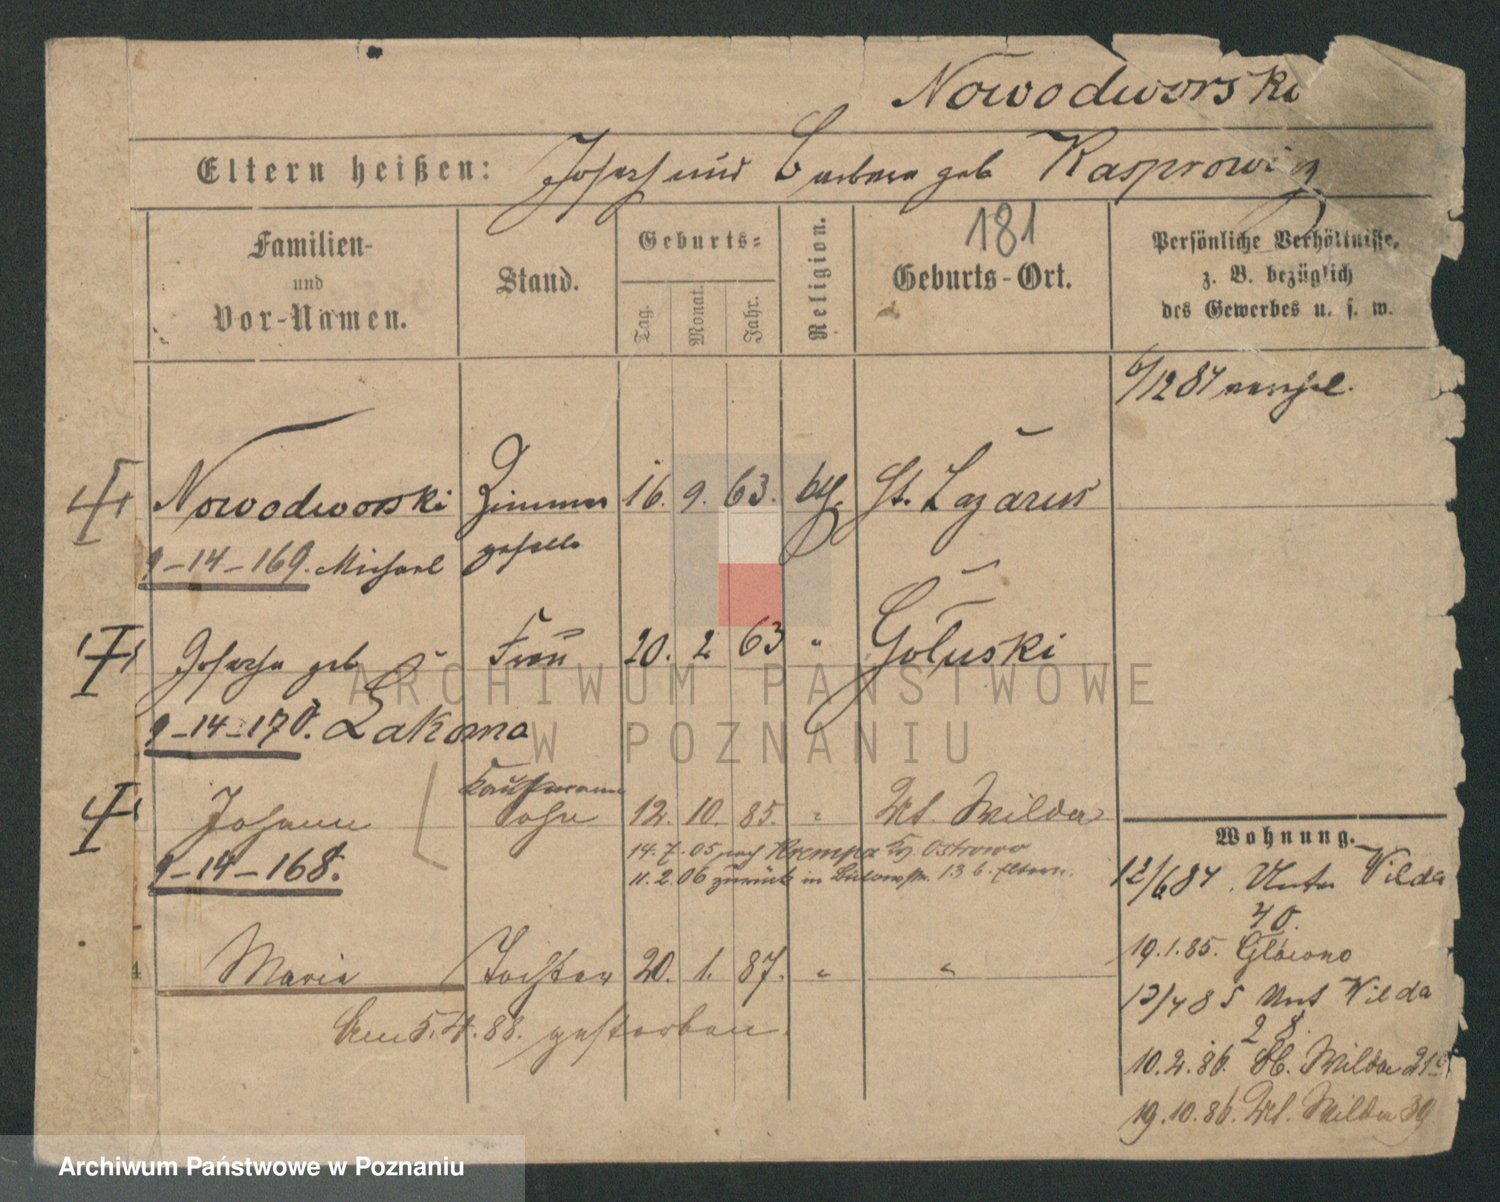 Nowodworski
Eltern heißen: Joseph und Barbara geb Kasprowicz
181
Familien-
und
Vor-Namen.
Stand.
Geburts-
Tag.
Monat.
Jahr.
Religion.
Geburts-Ort.
Persönliche Verhältnisse,
z. B. bezüglich
des Gewerbes u. s. w.
6/12 87
Nowodworski Zimmer 16. 9. 63. kth. St. Lazarus
9-14-169. Michael geselle
Josepha geb Frau 20. 2 63 " Goluski
9-14-170. Lakoma
Kaufmann
Johann Sohn 12. 10. 85. " Unt. Wilda
9-14-168.
14.7.05 nach Krempa Kr. Ostrowo
11.2.06 zurück in Bülowstr. 13 b. Eltern.
Maria Tochter 20. 1. 87. " "
Am 5.4.88. gestorben.
Wohnung.
12/6 84. Unter Wilda
40.
19.1.85. Glowno
13/4 85 Unt Wilda
28.
10.2.86. Ob. Wilda 21
19.10.86. Unt. Wilda 39
ARCHIWUM PAŃSTWOWE
W POZNANIU
Archiwum Państwowe w Poznaniu